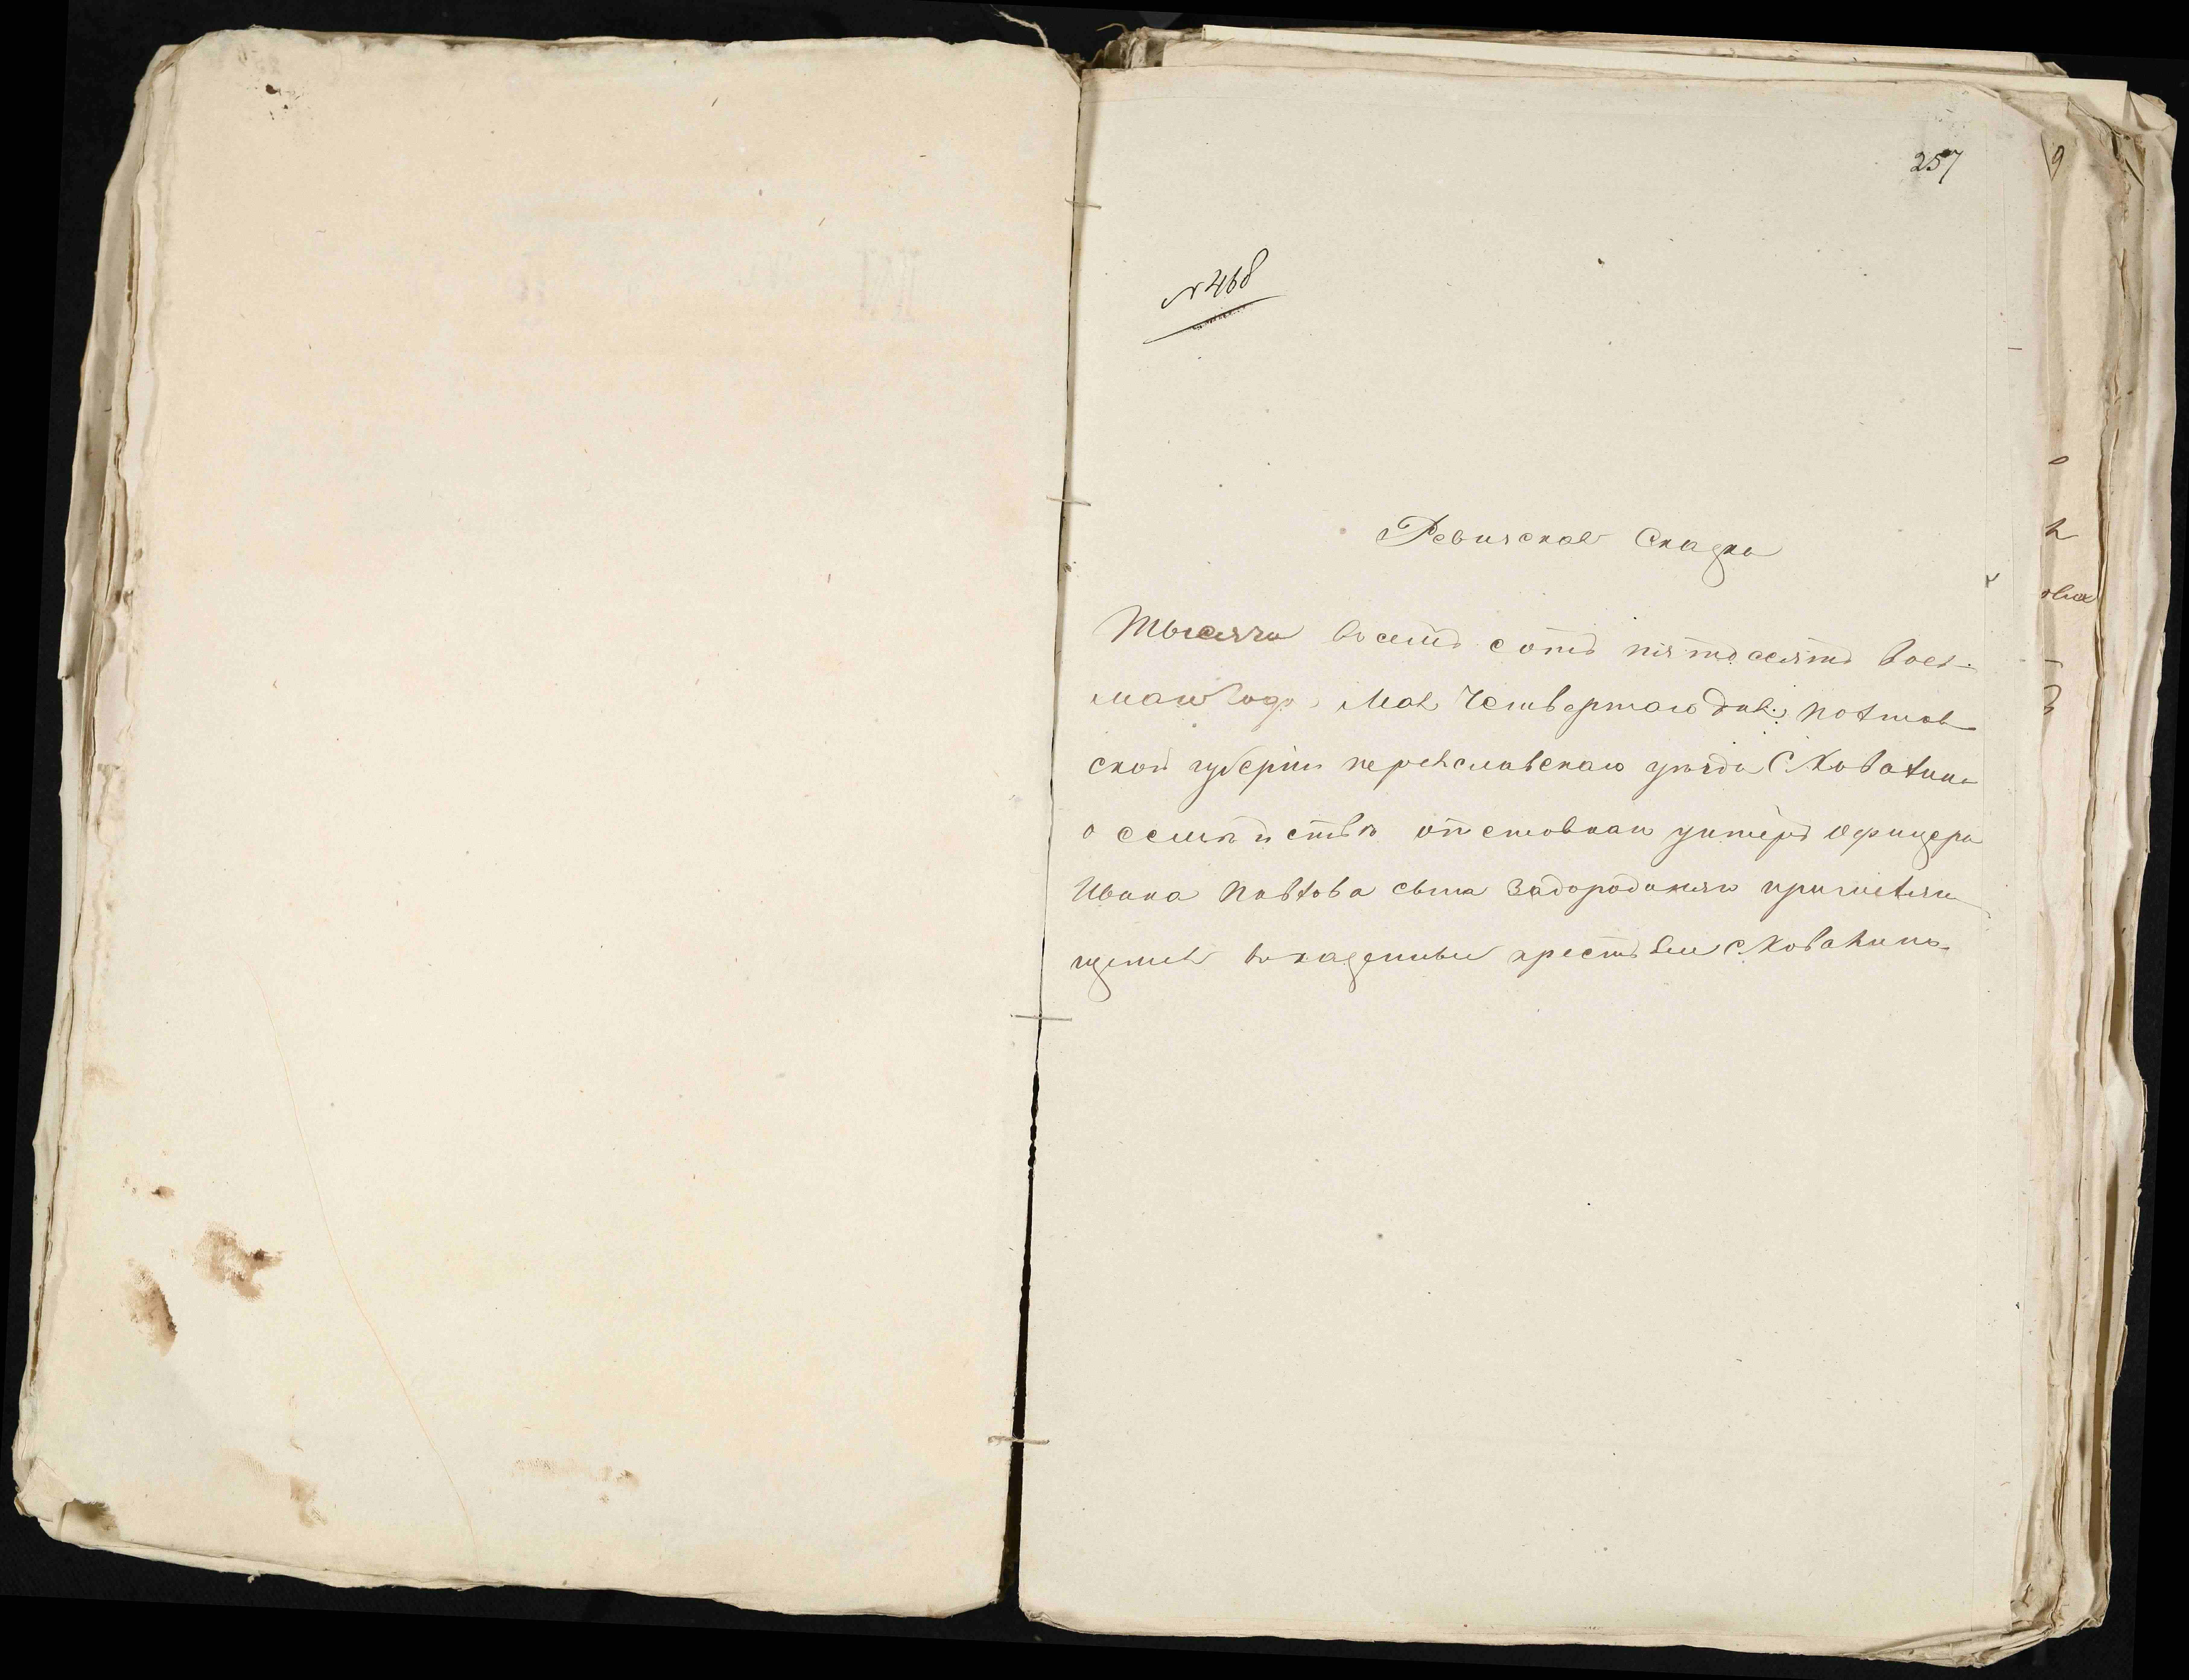 257
№ 468
Ревизская Сказка
Тысяча восемъ сотъ пятдесятъ вось-
маго года Мая Четвертаго дня. Полтав
ской губерніи переяславскаго уезда С Ковалина
о семействе отставнаго унтеръ Офицера
Ивана Павлова сына Задородняго причисляю
щемся в казенные крестьяне с. Ковалина.